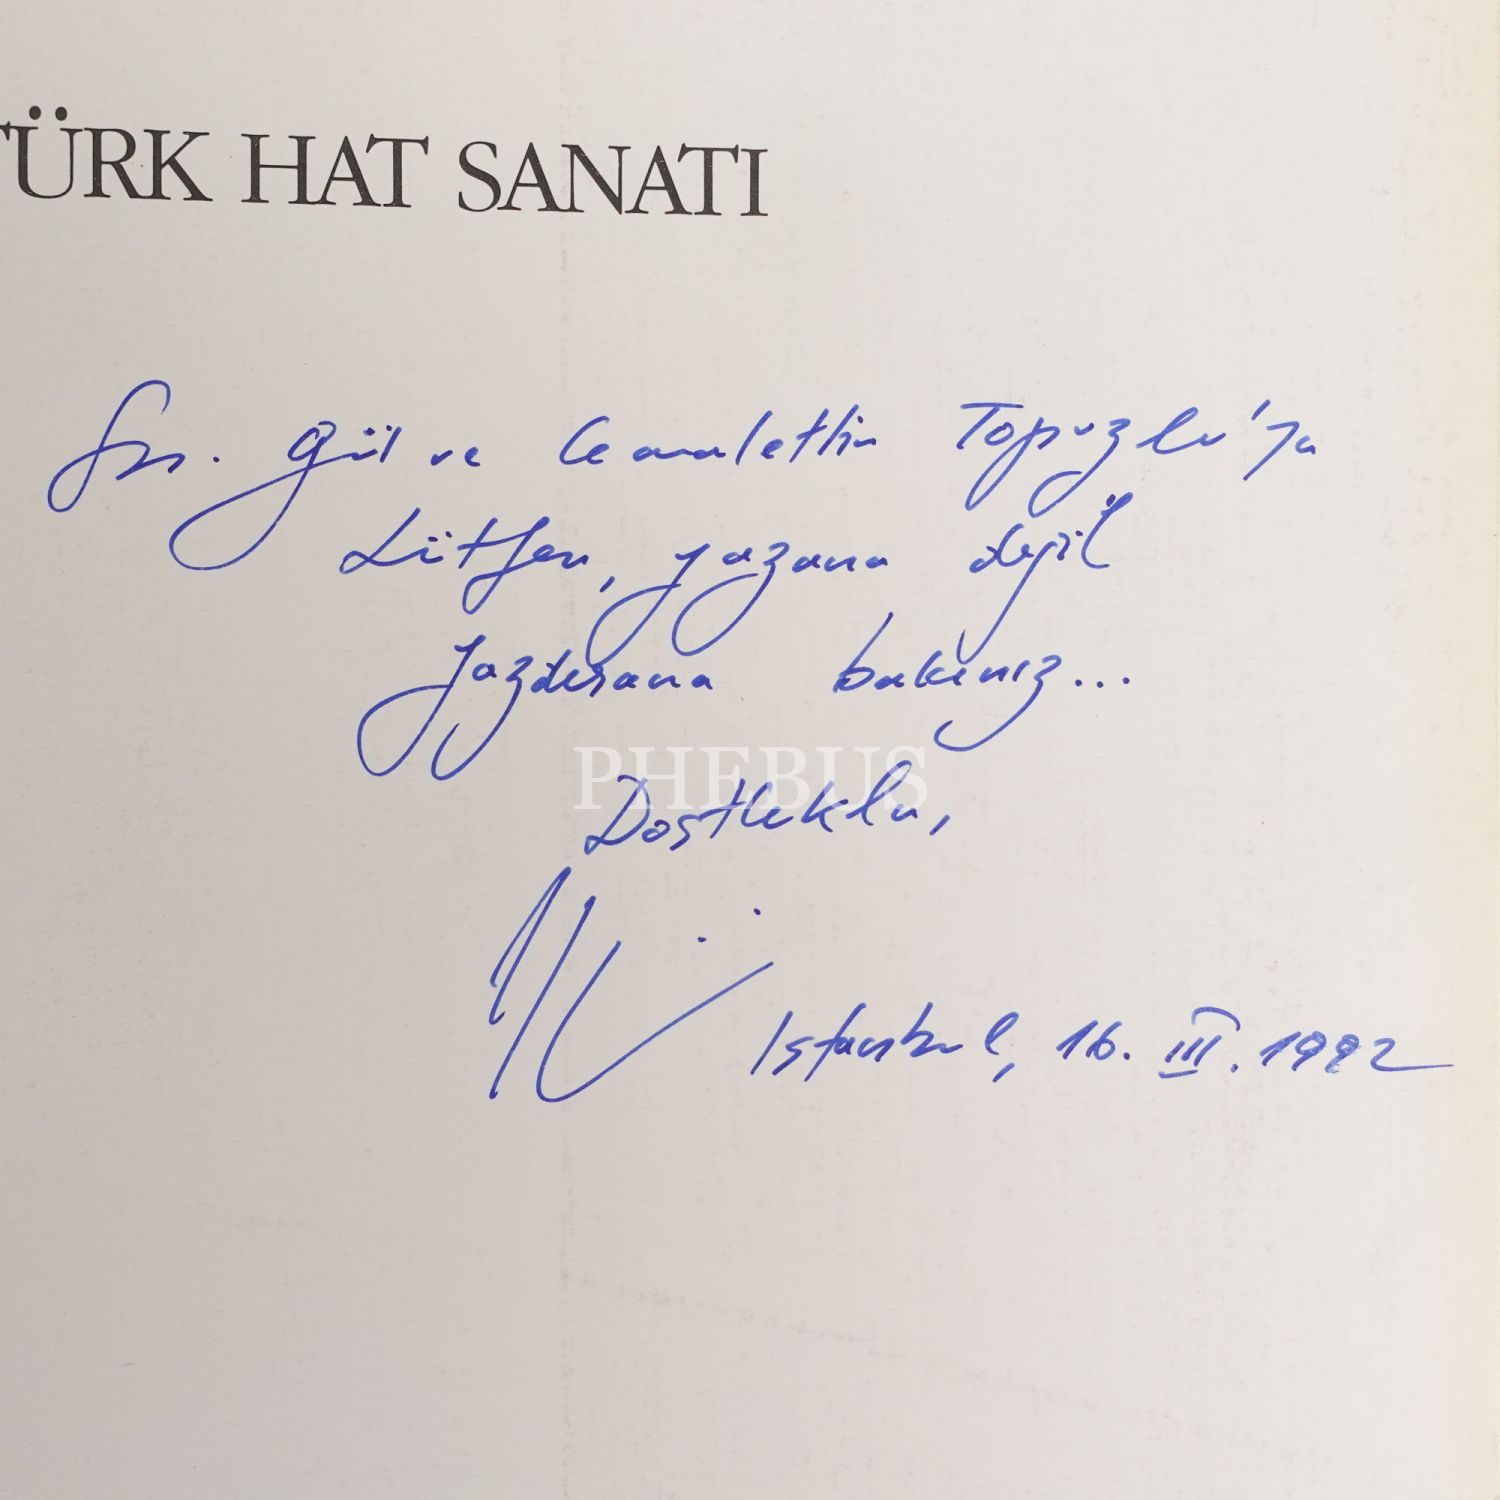 TÜRK HAT SANATI
Sn. Gül ve Cemalettin Topuzlu'ya
Lütfen, yazana değil
yazdırana bakınız...
PHEBUS
Dostlukla,
Istanbul, 16. III. 1992